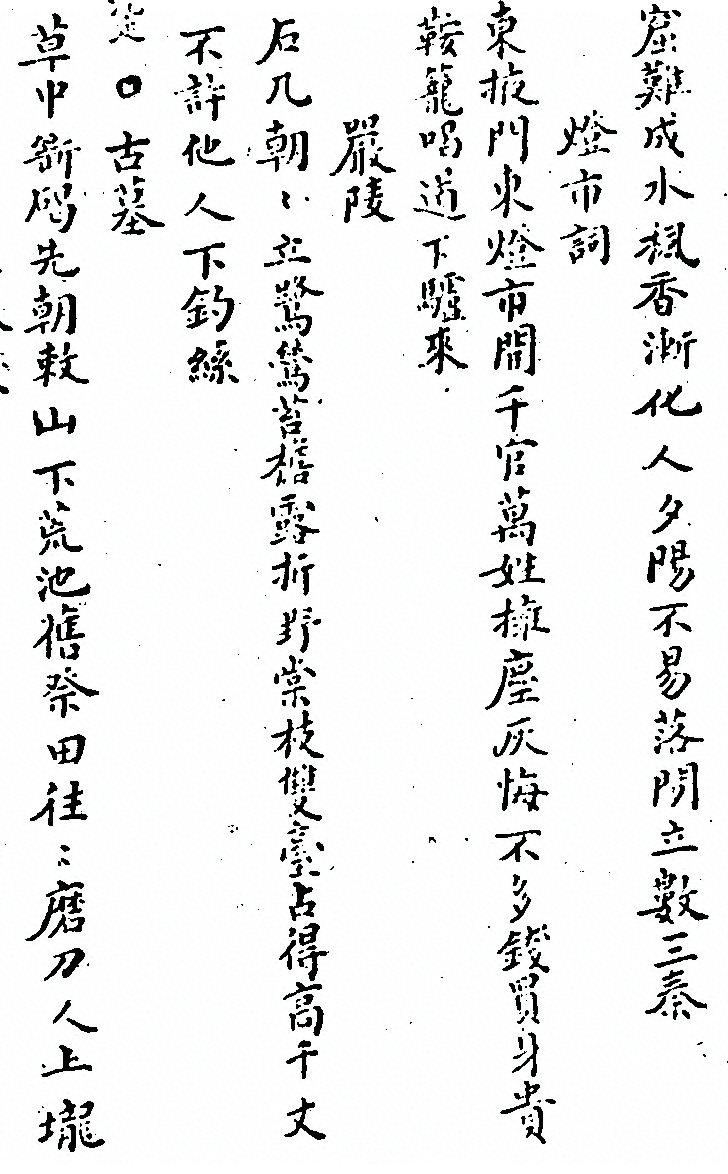 窟難成水楓香漸化人夕陽不易落閒立數三秦
燈市詞
東掖門東燈市開千官萬姓擁塵灰悔不多錢買身貴
鞍籠喝道下驢來
嚴陵
石几朝〻立鷺鷥苔檐露折野棠枝雙臺占得高千丈
不許他人下釣絲
古墓
草中斷碣先朝敕山下荒池舊祭田往〻磨刀人上壠